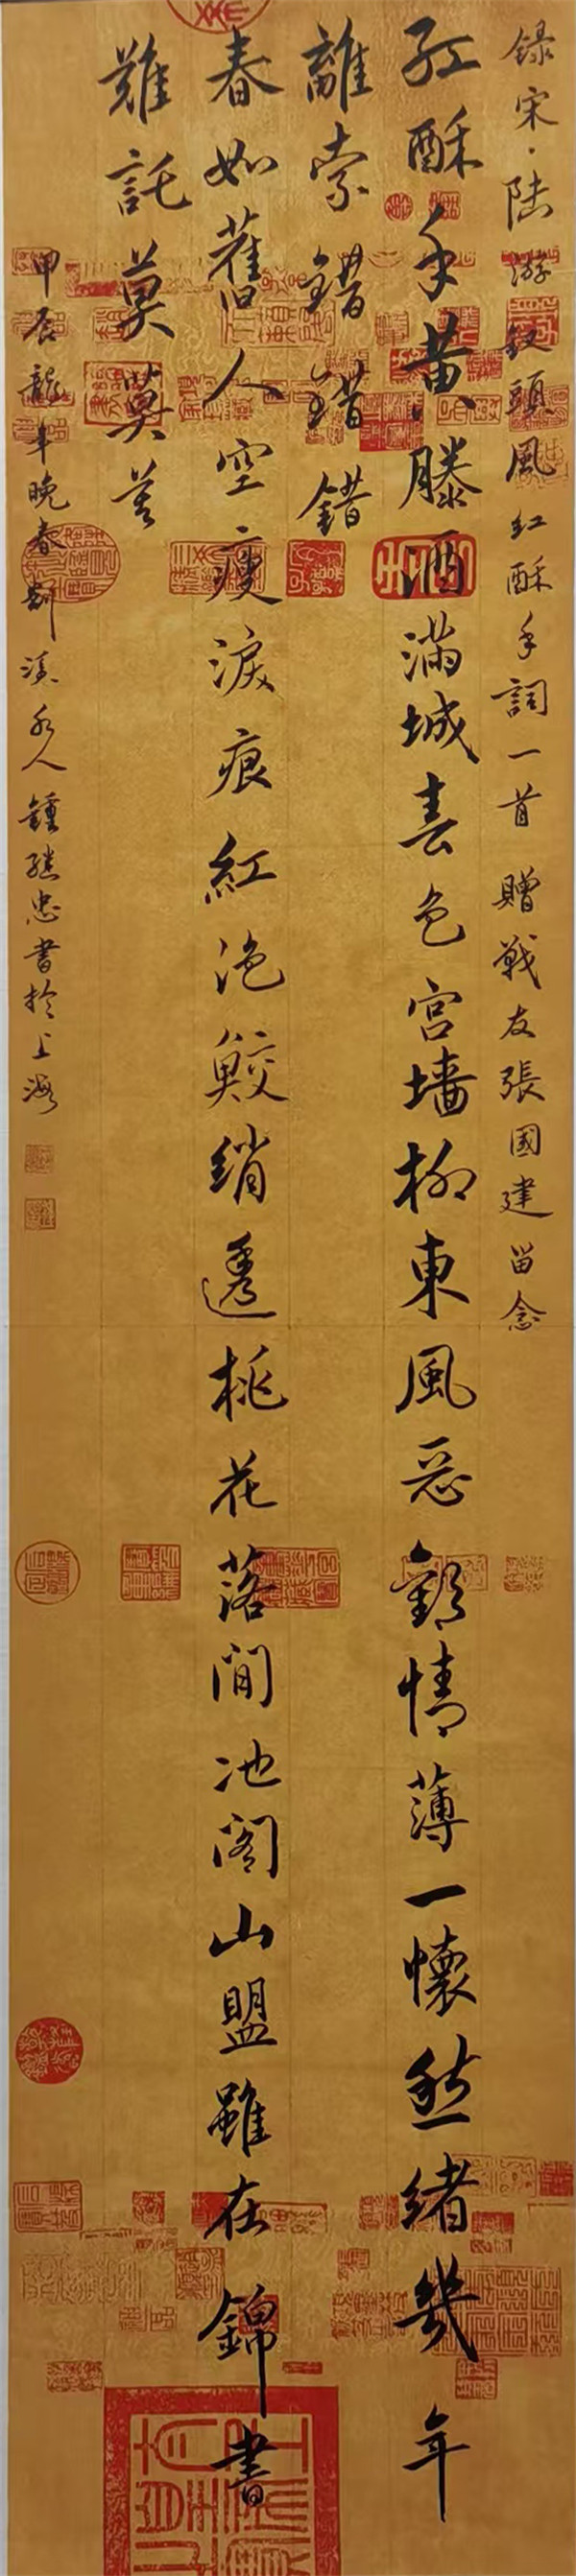 録宋·陸游釵頭風紅酥手詞一首贈戰友張國建留念
紅酥手黄滕酒滿城春色宫墻柳東風惡歡情薄一懷愁緒幾年
離索錯錯錯
春如舊人空瘦淚痕紅浥鮫綃透桃花落閒池閣山盟雖在錦書
難託莫莫莫
甲辰龍年晚春剡溪水人鍾继忠書於上海